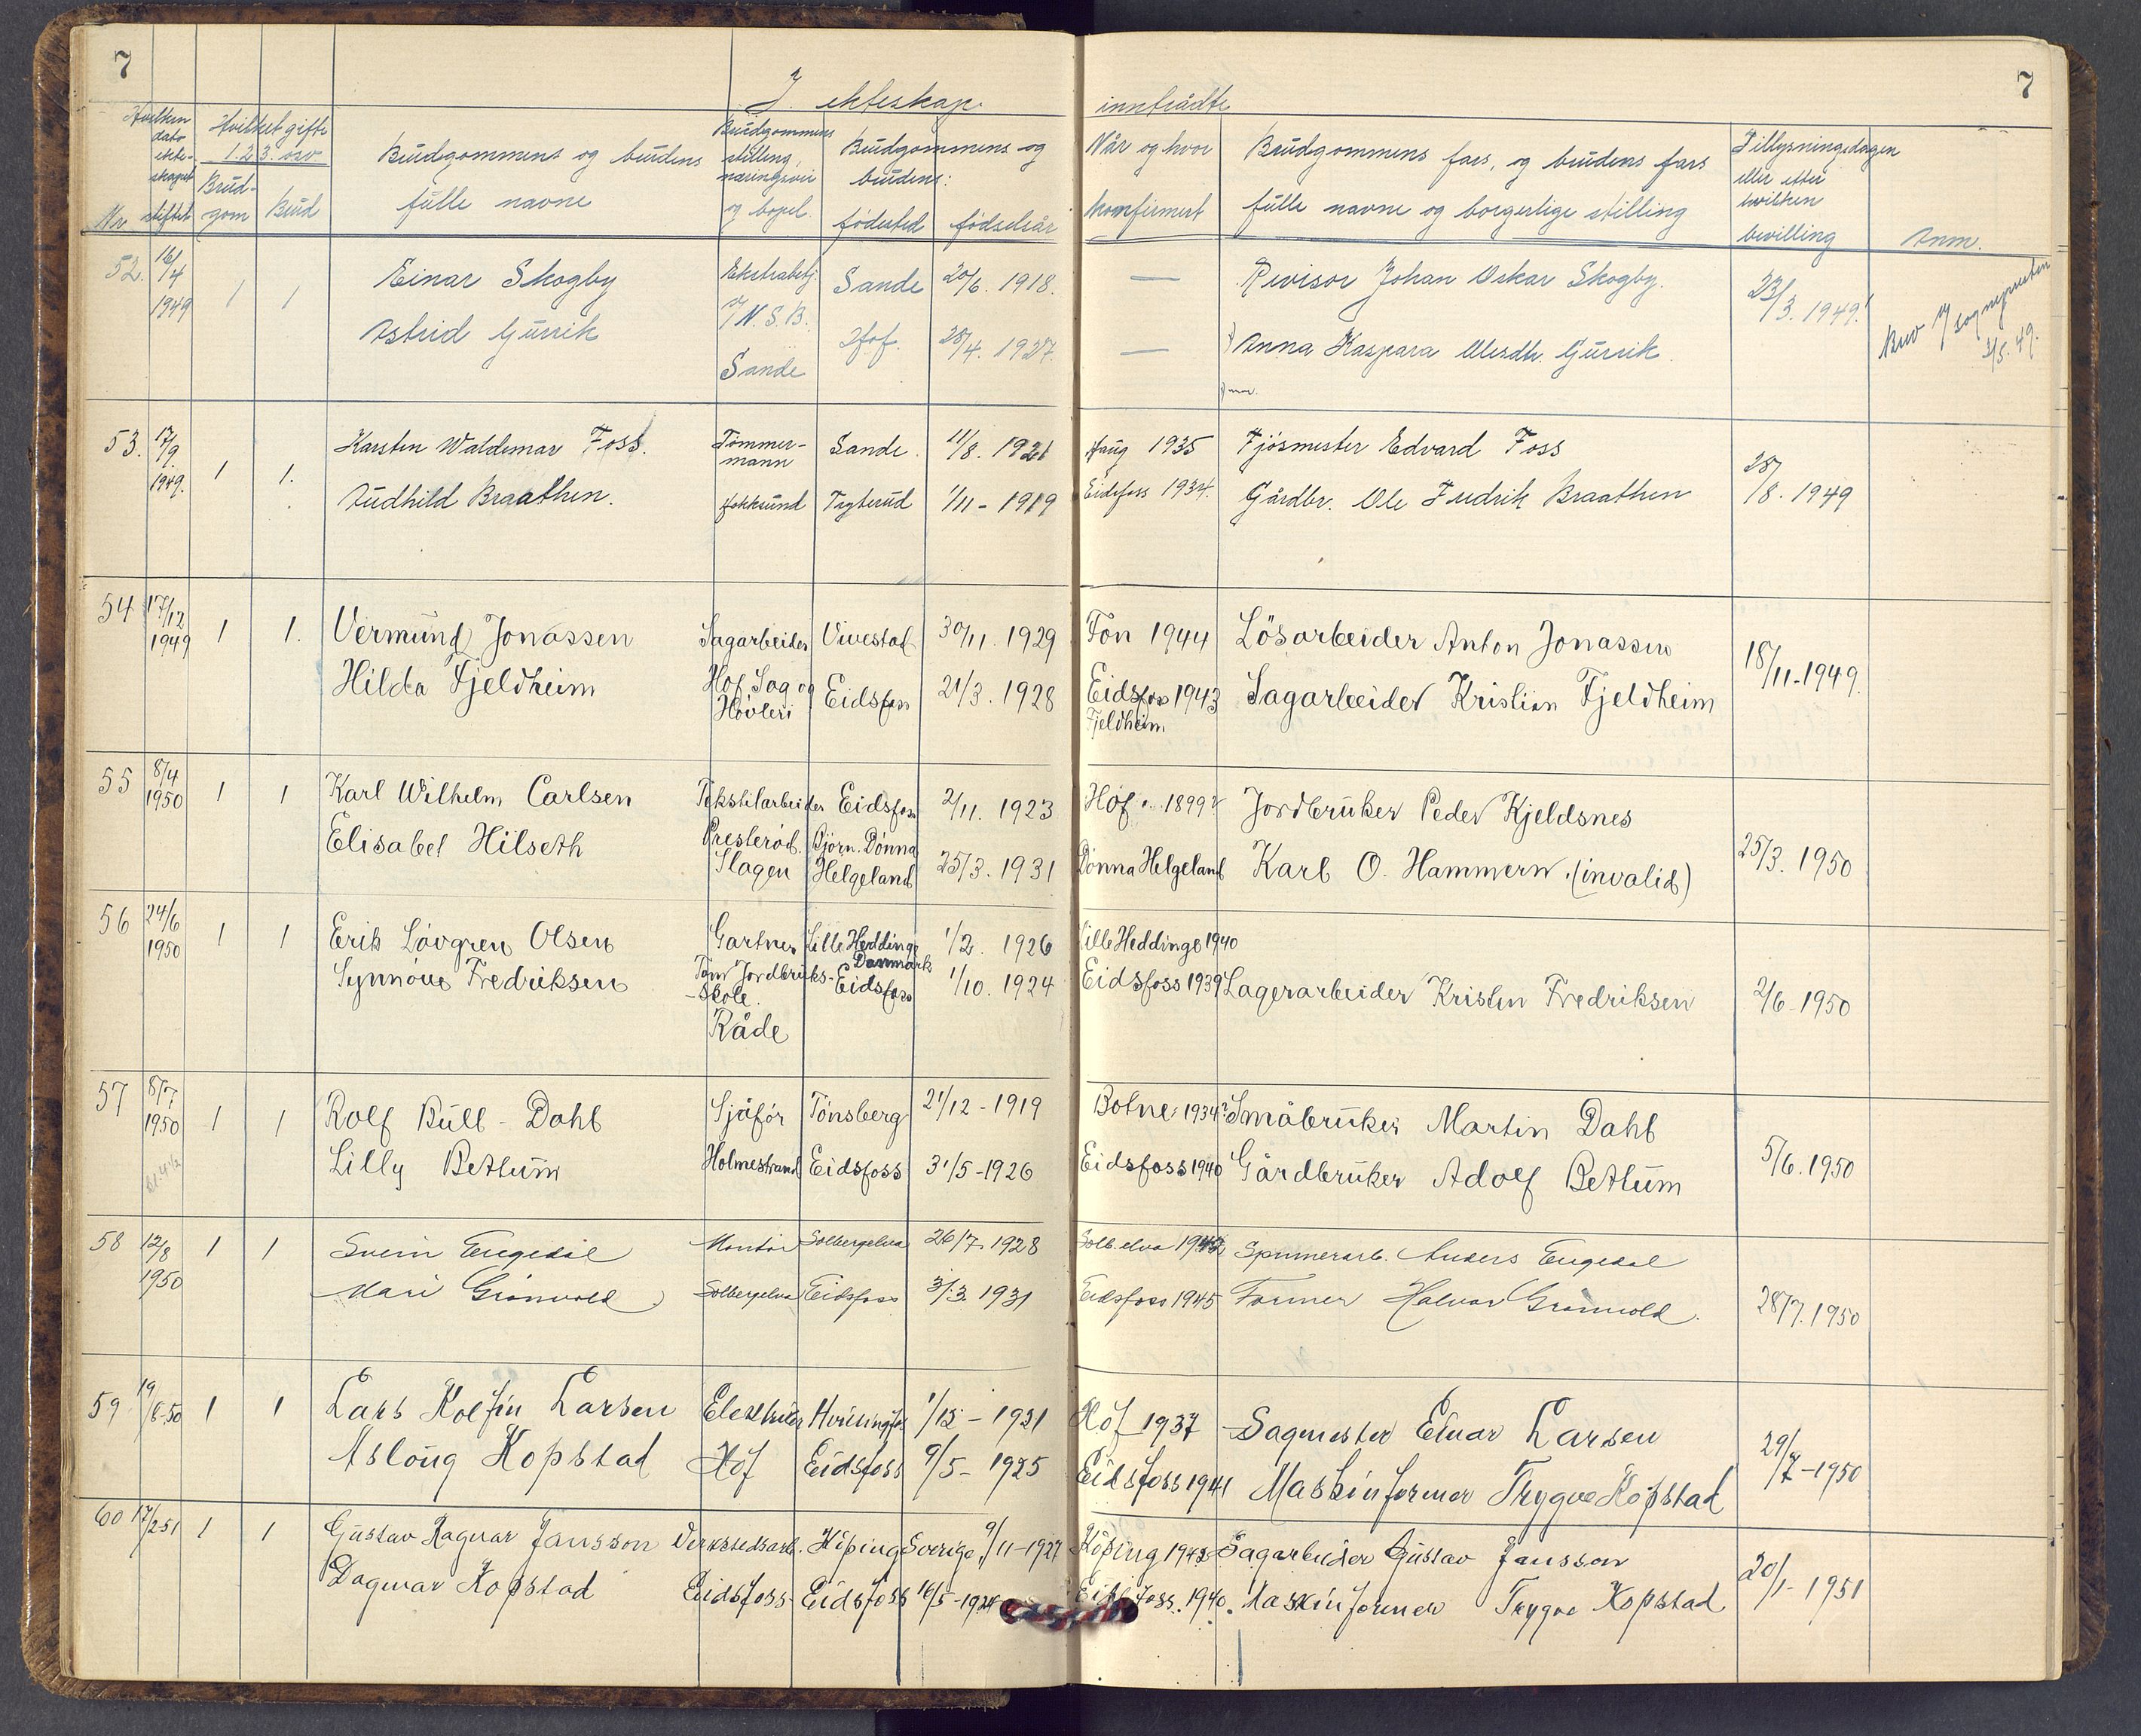 7
7
I ekteskap inntrådte
Nr
Hvilken dato ekteskapet stiftet
Hvilket gifte 1. 2. 3. osv
Brudgom
Brud
Brudgommens og brudens fulle navne
Brudgommens stilling, næringsvei og bopel
Brudgommens og brudens:
fødested
fødselsår
Når og hvor konfirmert
Brudgommens fars, og brudens fars fulle navne og borgerlige stilling
Tillysningsdagen eller etter hvilken bevilling
Anm.
52. 16/4 1949 1 1 Einar Skogby Ekstrabetj. Sande 20/6. 1918. — Revisor Johan Oskar Skogby. 23/3. 1949.
Astrid Gurrik v/ N.S.B. Sande Hof. 28/4. 1927. — 1) Anna Kaspara Gurrik.
1) mor.
Brev sognepresten 2/5. 49.
53. 17/9. 1949. 1 1. Karsten Waldemar Foss. Tømmer-mann Sande. 11/8. 1921 Haug 1935 Fjøsmester Edvard Foss 28/8. 1949
Audhild Braathen. Hokksund Tryterud 1/11 - 1919 Eidsfoss 1934. Gårdbr. Ole Fredrik Braathen
54 17/12 1949 1 1. Vermund Jonassen Sagarbeider Vivestad 30/11. 1929 Fon 1944 Lösarbeider Anton Jonassen 18/11-1949.
Hilda Fjeldheim Hof Sag og Høvleri Eidsfoss 21/3. 1928 Eidsfoss 1943 Sagarbeider Kristian Fjeldheim
Fjeldheim
55 8/4 1950 1 1 Karl Wilhelm Carlsen Tekstilarbeider Eidsfoss 2/11. 1923 Hof 1899? Jordbruker Peder Kjeldsnes 25/3. 1950
Elisabet Hilseth Presterød. Slagen Bjørn. Dønna Helgeland 25/3. 1931 Dønna Helgeland Karl O. Hammern. (invalid)
56 24/6 1950 1 1 Erik Lövgren Olsen Gartner Lille Heddinge Danmark 1/2. 1926 Lille Heddinge 1940
Synnöve Fredriksen Tomb Jordbruks-skole. Råde Eidsfoss 1/10. 1924 Eidsfoss 1939 Lagerarbeider Kristen Fredriksen 2/6-1950
57 8/7 1950 1 1 Rolf Bull-Dahl Sjåför Tönsberg 21/12-1919 Botne 1934? Småbruker Martin Dahl 5/6. 1950
kl. 4 1/2
Lilly Betlum Holmestrand Eidsfoss 31/5-1926 Eidsfoss 1940 Gårdbruker Adolf Betlum
58 12/8 1950 1 1 Svein Engedal Montør Solbergelva 26/7 1928 Solb.elva 1942 Spinnerarb. Anders Engedal 28/7. 1950
Mari Grønvold Solbergelva Eidsfoss 3/3. 1931 Eidsfoss 1945 Former Halvor Grønvold.
59 19/8-50 1 1 Lars Kolfin Larsen Elektriker 1/12 - 1921 Hof 1937 Sagmester Einar Larsen 29/7-1950
Aslaug Kopstad Hof Eidsfoss 9/5- 1925 Eidsfoss 1941 Maskinformer Trygve Kopstad
60 17/2 51 1 1 Gustav Ragnar Jansson Verkstedsarb. Köping Sverige. 9/11-1927 Köping 1942 Sagarbeider Gustav Jansson 20/1-1951
Dagmar Kopstad Eidsfoss Eidsfoss 16/5-1924 Eidsfoss. 1940. Maskinformer Trygve Kopstad